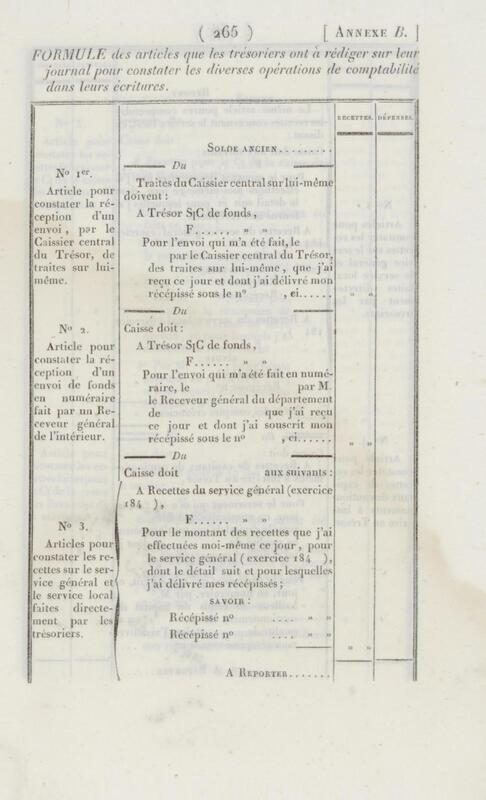 ( 265 ) [ ANNEXE B. ]
FORMULE des articles que les trésoriers ont à rédiger sur leur
journal pour constater les diverses opérations de comptabilité
dans leurs écritures.
RECETTES. DÉPENSES.
SOLDE ANCIEN.........
Du
No 1er.
Article pour
constater la ré-
ception d'un
envoi, par le
Caissier central
du Trésor, de
traites sur lui-
même.
Traites du Caissier central sur lui-même
doivent :
A Trésor S/C de fonds,
F...... » »
Pour l'envoi qui m'a été fait, le
par le Caissier central du Trésor,
des traites sur lui-même, que j'ai
reçu ce jour et dont j'ai délivré mon
récépissé sous le no , ci...... » »
Du
No 2.
Article pour
constater la ré-
ception d'un
envoi de fonds
en numéraire
fait par un Re-
ceveur général
de l'intérieur.
Caisse doit :
A Trésor S/C de fonds,
F...... » »
Pour l'envoi qui m'a été fait en numé-
raire, le par M.
le Receveur général du département
de que j'ai reçu
ce jour et dont j'ai souscrit mon
récépissé sous le no , ci...... » »
Du
Caisse doit aux suivants :
No 3.
Articles pour
constater les re-
cettes sur le ser-
vice général et
le service local
faites directe-
ment par les
trésoriers.
A Recettes du service général (exercice
184 ),
F...... » »
Pour le montant des recettes que j'ai
effectuées moi-même ce jour, pour
le service général (exercice 184 ),
dont le détail suit et pour lesquelles
j'ai délivré mes récépissés;
SAVOIR :
Récépissé no .... » »
Récépissé no .... » »
» »
A REPORTER.......